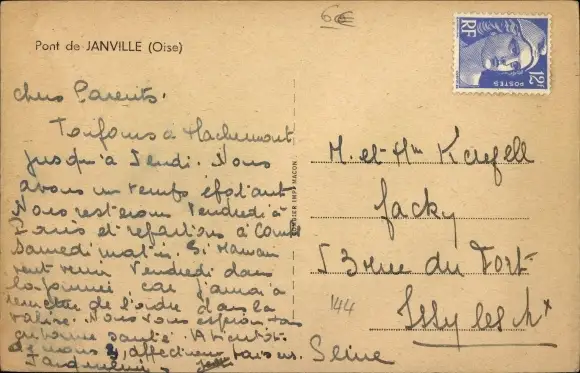 6€
Pont de JANVILLE (Oise)
RF
POSTES
12F
chers Parents.
Toujours à Machemont
jusqu'à Jeudi. Nous
avons un temps épatant
Nous resterons Vendredi à
Paris et repartons à
samedi matin. Si Maman
veut venir Vendredi dans
la journée, car j'aurai à
remettre de l'ordre dans la
valise. Nous vous espérons
en bonne santé. A bientôt
de nous 2, affectueux baisers.
M. et Mm
Jacky
53 rue du Fort
144
Issy les Mx
Seine